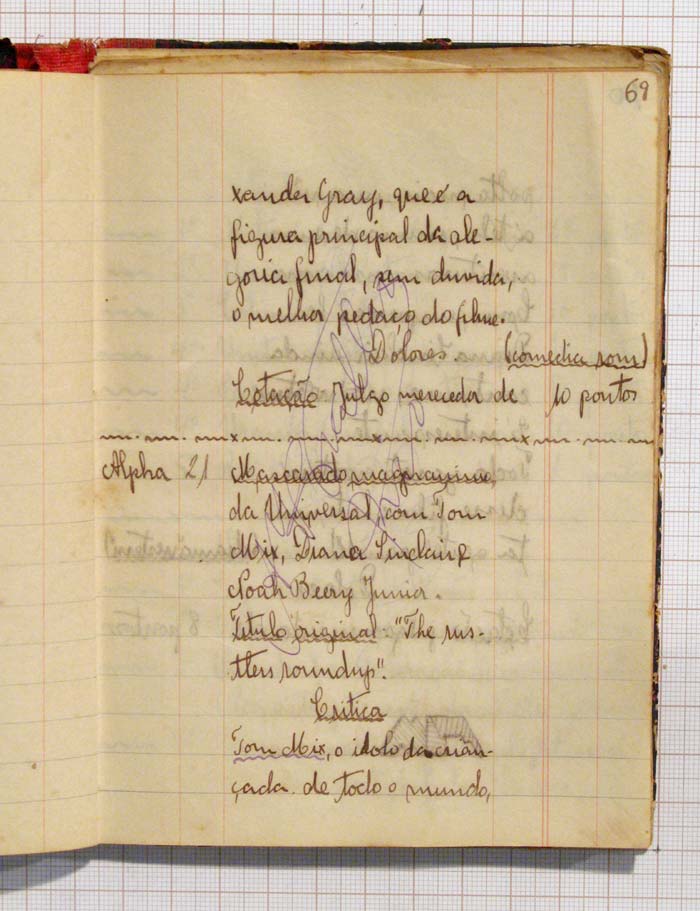 69
xander Gray, que é a
figura principal da ale-
goria final, sem duvida,
o melhor pedaço do filme.
Dolores. (comedia som)
Cotação Julgo merecedor de 10 pontos
Alpha 21 Mascarado magnanimo,
da Universal com Tom
Mix, Diana Sinclair e
Noah Beery Junior.
Titulo original. "The rus-
tlers roundup".
Critica
Tom Mix, o idolo da crian-
çada de todo o mundo,